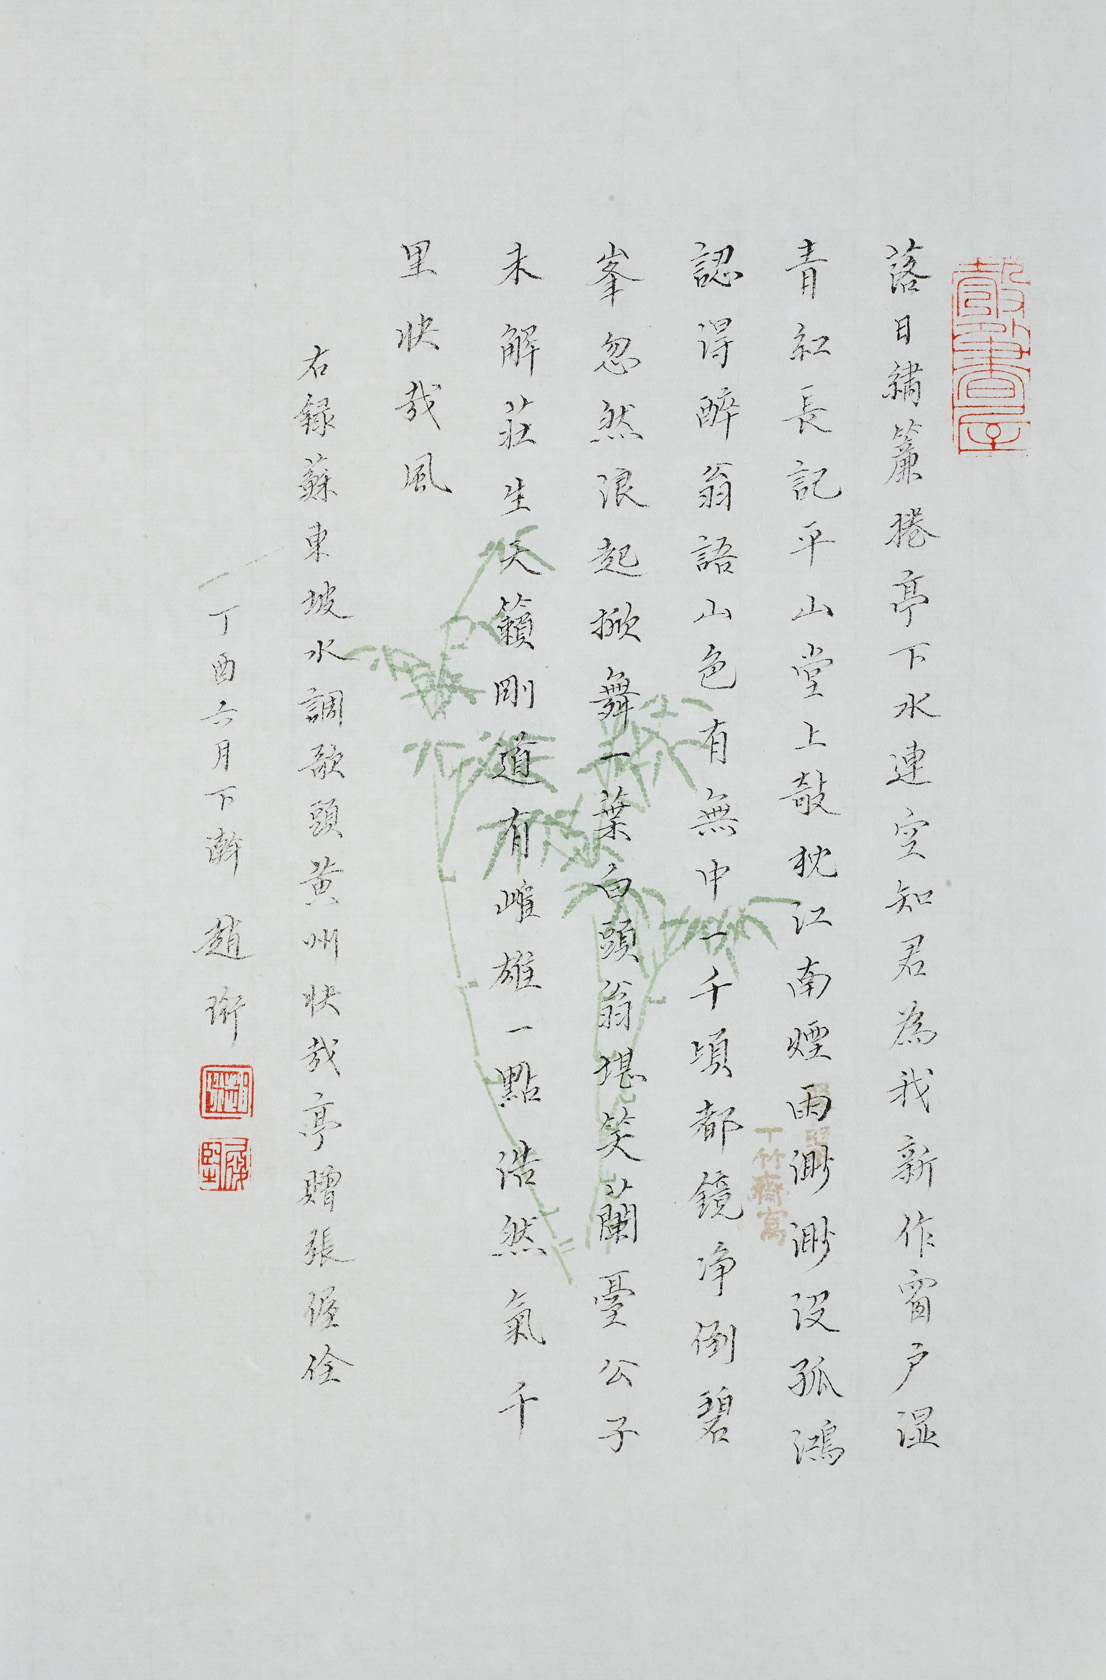 落日繡簾捲亭下水連空知君為我新作窗户湿
青紅長記平山堂上敧枕江南煙雨渺渺没孤鴻
認得醉翁語山色有無中一千頃都鏡净倒碧
峯忽然浪起掀舞一葉白頭翁堪笑蘭臺公子
未解莊生天籟剛道有雌雄一點浩然氣千
里快哉風
右録蘇東坡水調歌頭黄州快哉亭贈張偓佺
丁酉六月下澣 趙珩
趙珩
竹齋寫